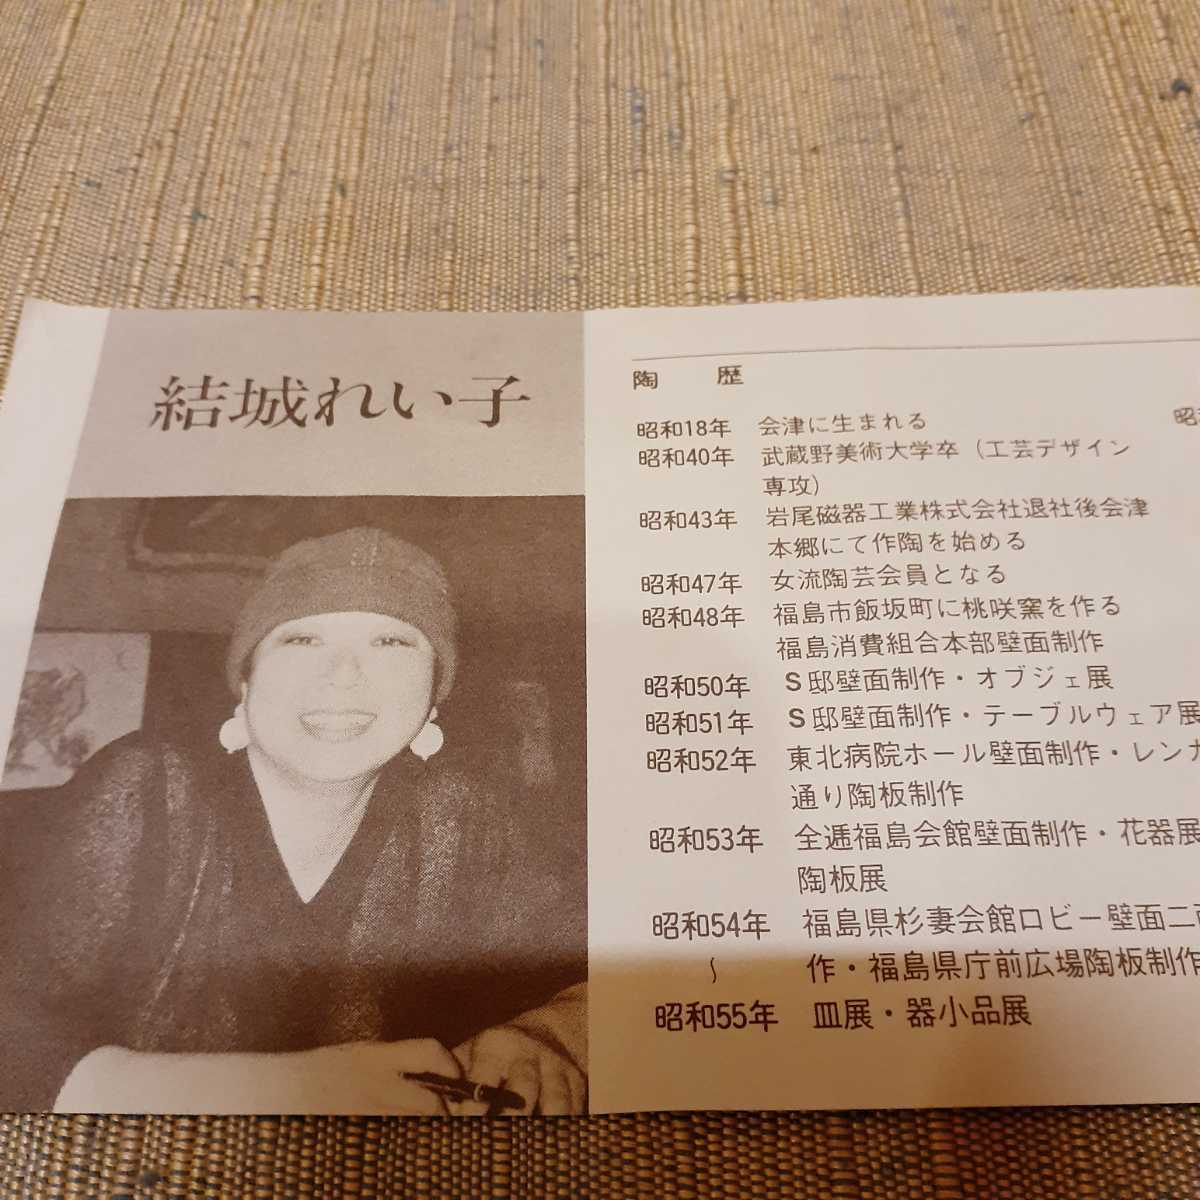 結城れい子
陶 歴
昭和18年 会津に生まれる
昭和40年 武蔵野美術大学卒（工芸デザイン
専攻）
昭和43年 岩尾磁器工業株式会社退社後会津
本郷にて作陶を始める
昭和47年 女流陶芸会員となる
昭和48年 福島市飯坂町に桃咲窯を作る
福島消費組合本部壁面制作
昭和50年 S邸壁面制作・オブジェ展
昭和51年 S邸壁面制作・テーブルウェア展
昭和52年 東北病院ホール壁面制作・レンガ
通り陶板制作
昭和53年 全逓福島会館壁面制作・花器展
陶板展
昭和54年 福島県杉妻会館ロビー壁面二面
〜 作・福島県庁前広場陶板制作
昭和55年 皿展・器小品展
昭